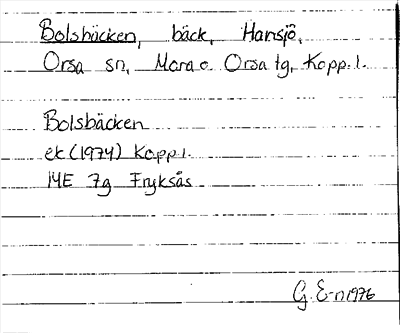 Bolsbäcken, bäck, Hansjö,
Orsa sn, Mora o. Orsa tg, Kopp. l.
Bolsbäcken
ek (1974) Kopp l.
14E 7g Fryksås
G. E-n 1976